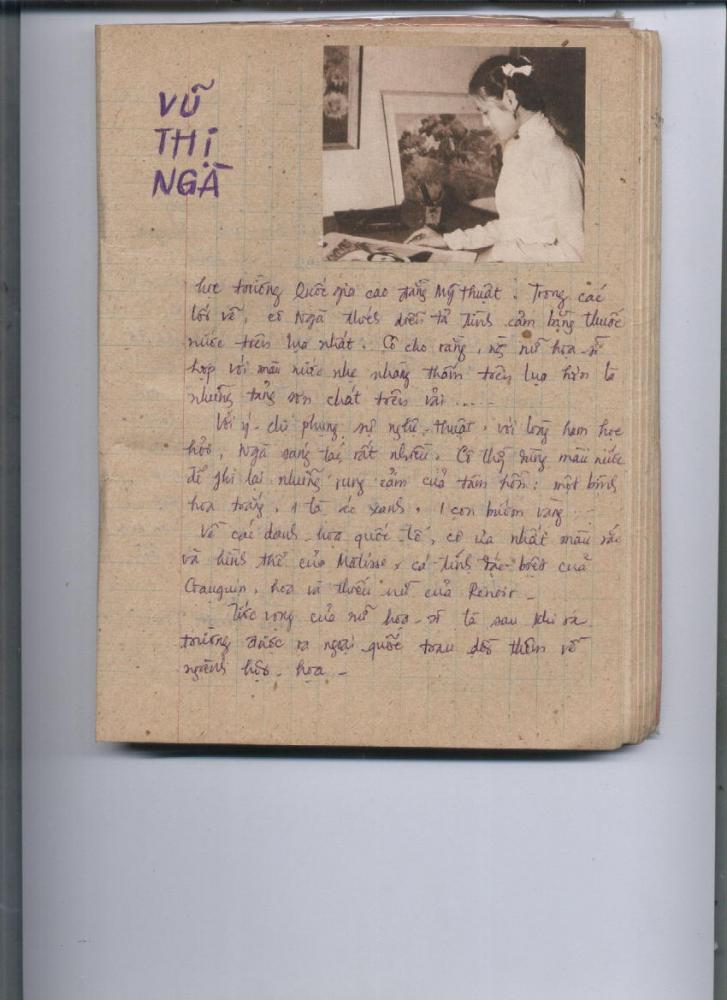 VŨ
THỊ
NGÀ
học trường Quốc gia cao đẳng Mỹ thuật. Trong các
lối vẽ, cô Ngà thích diễn tả tình cảm bằng thuốc
nước trên lụa nhất. Cô cho rằng, nữ họa-sĩ
hợp với màu nước nhẹ nhàng thấm trên lụa hơn là
những tảng sơn chát trên vải ....
Với ý-chí phụng sự nghệ-thuật, với lòng ham học
hỏi, Ngà sáng tác rất nhiều. Cô thường dùng màu nước
để ghi lại những rung cảm của tâm hồn: một bông
hoa trắng, 1 lá úa xanh, 1 con bướm vàng ...
Về các danh-họa quốc tế, cô ưa nhất màu sắc
và hình thể của Matisse, cá tính đặc-biệt của
Gauguin, hoa và thiếu nữ của Renoir -
Ước vọng của nữ họa-sĩ là sau khi ra
trường được ra ngoại quốc trau dồi thêm về
ngành hội-họa -